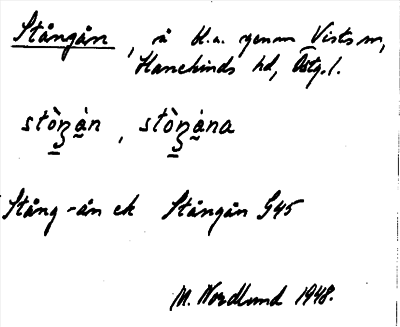 Stångån, å bl.a. genom Vists sn,
Hanekinds hd, Östg. l.
stòŋàn, stòŋàna
Stång-ån ek Stångån G45
M. Nordlund 1948.